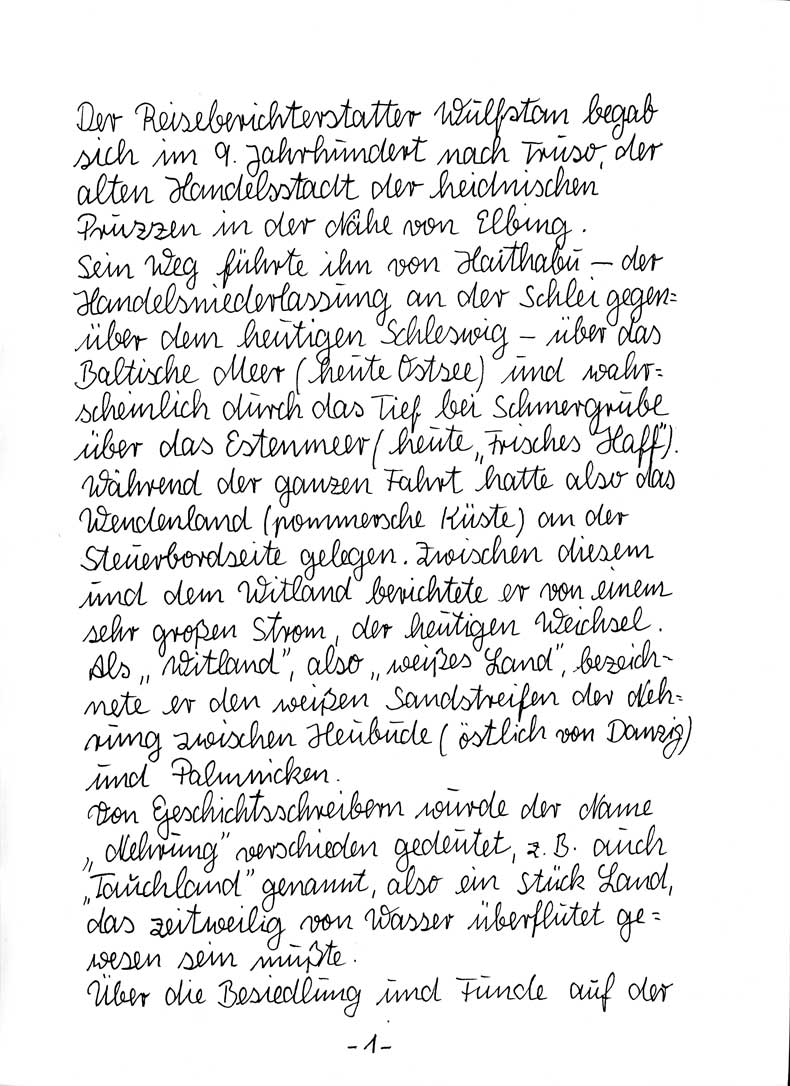 Der Reiseberichterstatter Wulfstan begab
sich im 9. Jahrhundert nach Truso, der
alten Handelsstadt der heidnischen
Pruzzen in der Nähe von Elbing.
Sein Weg führte ihn von Haithabu – der
Handelsniederlassung an der Schlei gegen=
über dem heutigen Schleswig – über das
Baltische Meer (heute Ostsee) und wahr=
scheinlich durch das Tief bei Schmergrube
über das Estenmeer (heute „Frisches Haff").
Während der ganzen Fahrt hatte also das
Wendenland (pommersche Küste) an der
Steuerbordseite gelegen. Zwischen diesem
und dem Witland berichtete er von einem
sehr großen Strom, der heutigen Weichsel.
Als „Witland", also „weißes Land", bezeich-
nete er den weißen Sandstreifen der Neh=
rung zwischen Heubude (östlich von Danzig)
und Palmnicken.
Von Geschichtsschreibern wurde der Name
„Nehrung" verschieden gedeutet, z.B. auch
„Tauchland" genannt, also ein Stück Land,
das zeitweilig von Wasser überflutet ge=
wesen sein mußte.
Über die Besiedlung und Funde auf der
-1-